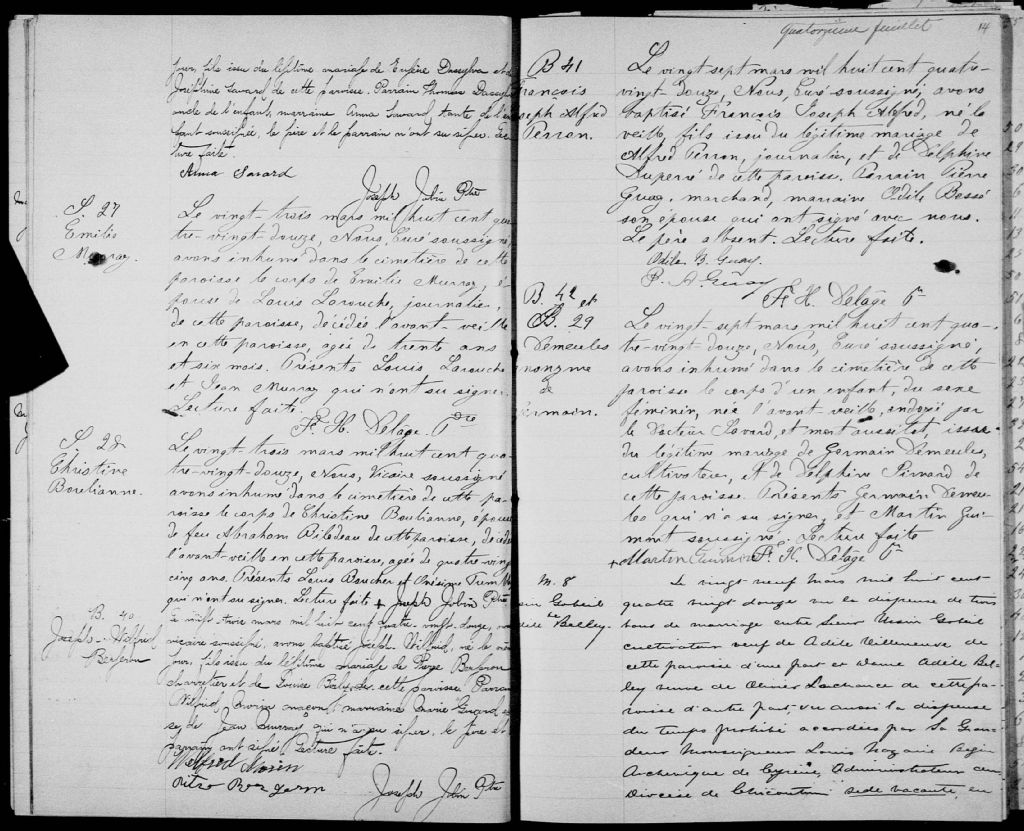 jour, fils issu du légitime mariage de Eugène Dasylva et de
Joséphine Savard de cette paroisse. Parrain Thomas Dasylva
oncle de l'enfant, marraine Anna Savard, tante de l'en-
fant soussignée, le père et le parrain n'ont su signer. Lec-
ture faite.
Anna Savard
Joseph Jobin Ptre
S. 27
Emilie
Murray.
Le vingt-trois mars mil huit cent qua-
tre-vingt-douze, Nous, Curé soussigné,
avons inhumé dans le cimetière de cette
paroisse le corps de Emilie Murray, é-
pouse de Louis Larouche, journalier,
de cette paroisse, décédée l'avant-veille
en cette paroisse, agée de trente ans
et six mois. Présents Louis Larouche
et Jean Murray qui n'ont su signer.
Lecture faite.
F. H. Delâge. Ptre
S. 28
Christine
Boulianne.
Le vingt-trois mars mil huit cent qua-
tre-vingt-douze, Nous, Vicaire soussigné
avons inhumé dans le cimetière de cette pa-
roisse le corps de Christine Boulianne, épouse
de feu Abraham Bilodeau de cette paroisse, décédée
l'avant-veille en cette paroisse, agée de quatre-vingt
cinq ans. Présents Louis Boucher et Onésime
qui n'ont su signer. Lecture faite + Joseph Jobin Ptre
B. 40
Joseph-Wilfrid
Bergeron
Le vingt-trois mars mil huit cent quatre-vingt-douze, nous
vicaire soussigné, avons baptisé Joseph Wilfrid, né le même
jour, fils issu du légitime mariage de Bergeron
charretier et de Louise de cette paroisse. Parrain
Wilfrid Morin maçon, marraine Marie
de Jean qui n'a pu signer, le père et
parrain ont signé Lecture faite.
Wilfred Morin
Bergeron
Joseph Jobin Ptre
Quatorzième feuillet
14
B 41
François
Joseph Alfred
Perron.
Le vingt sept mars mil huit cent quatre-
vingt-douze, Nous, Curé soussigné, avons
baptisé François Joseph Alfred, né la
veille, fils issu du légitime mariage de
Alfred Perron, journalier, et de Delphine
Duperré de cette paroisse. Parrain Pierre
Guay, marchand, marraine Odile Bossé
son épouse qui ont signé avec nous.
Le père absent. Lecture faite.
Odile B. Guay.
P. A Guay
F. H. Delâge Ptre
B. 42 et
S. 29
Demeules
anonyme
de
Germain.
Le vingt-sept mars mil huit cent qua-
tre-vingt-douze, Nous, Curé soussigné,
avons inhumé dans le cimetière de cette
paroisse le corps d'un enfant, du sexe
féminin, née l'avant-veille, ondoyé par
le Docteur Savard, et mort aussitôt, issue
du légitime mariage de Germain Demeules,
cultivateur, et de Delphine Simard de
cette paroisse. Présents Germain Demeu-
les qui n'a su signer, et Martin Gui-
mont soussigné. Lecture faite
+ Martin Guimont F. H. Delâge Ptre
M. 8
Gobeil
&
Belley.
Le vingt neuf mars mil huit cent
quatre vingt douze vu la dispense de trois
bans de mariage entre Sieur Gobeil
cultivateur veuf de Adèle Villeneuve de
cette paroisse d'une part et Dame Adèle Bel-
ley veuve de Olivier Lachance de cette pa-
roisse d'autre part, vu aussi la dispense
du temps prohibé accordées par Sa Gran-
deur Monseigneur Louis Nazaire Bégin
Archevêque de Cyrène, Administrateur du
Diocèse de Chicoutimi sede vacante, en